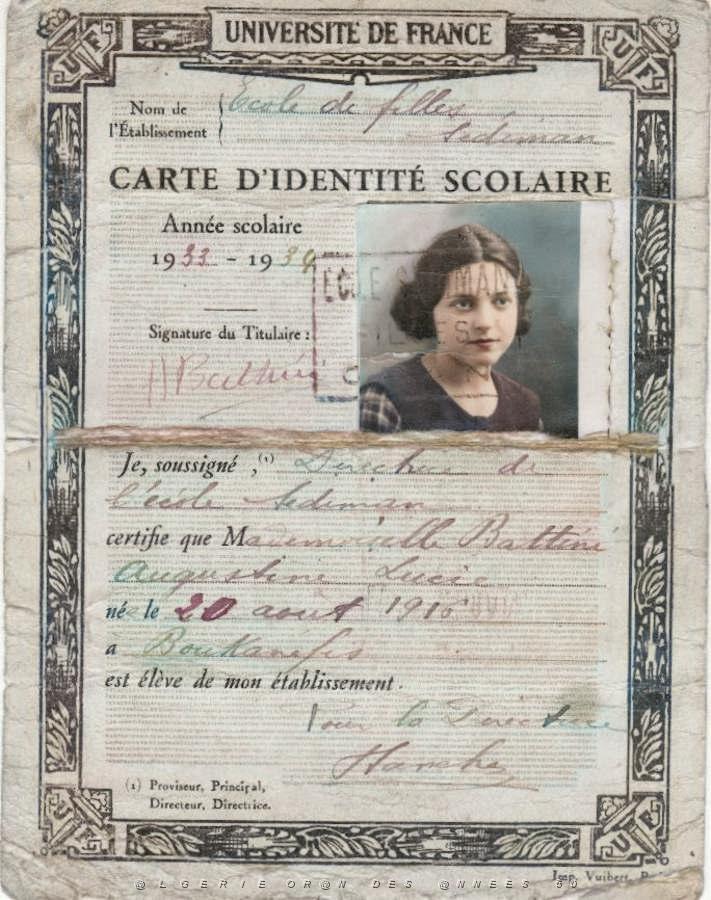 UNIVERSITÉ DE FRANCE
UF UF
Nom de l'Établissement { École de filles
Sédiman
CARTE D'IDENTITÉ SCOLAIRE
Année scolaire
1933 - 1934
Signature du Titulaire :
Battini
Je, soussigné ,(1) Directrice de
l'école Sédiman
certifie que Mademoiselle Battini
Augustine Lucie
née le 20 août 1916
à Boukanéfis
est élève de mon établissement.
Pour la Directrice
(1) Proviseur, Principal,
Directeur, Directrice.
UF UF
Imp. Vuibert,
@LGERIE OR@N DES @NNEES 50